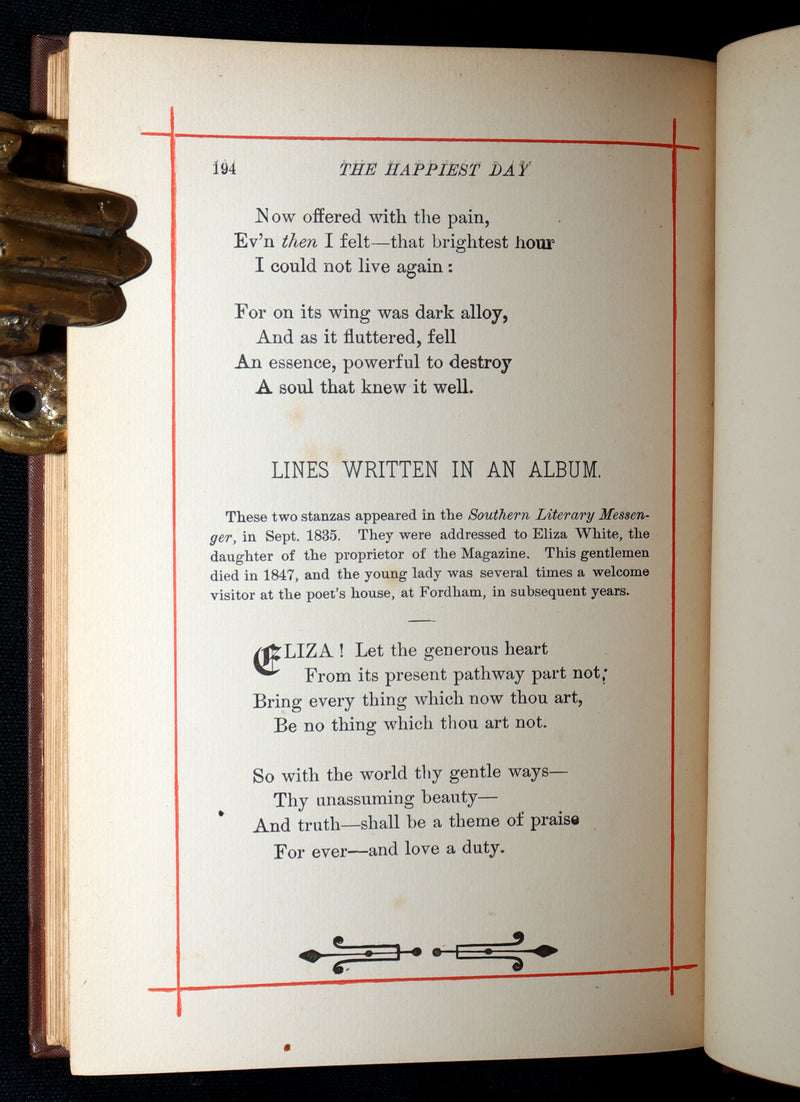 194 THE HAPPIEST DAY
Now offered with the pain,
Ev'n then I felt—that brightest hour
I could not live again :
For on its wing was dark alloy,
And as it fluttered, fell
An essence, powerful to destroy
A soul that knew it well.
LINES WRITTEN IN AN ALBUM.
These two stanzas appeared in the Southern Literary Messen-
ger, in Sept. 1835. They were addressed to Eliza White, the
daughter of the proprietor of the Magazine. This gentlemen
died in 1847, and the young lady was several times a welcome
visitor at the poet's house, at Fordham, in subsequent years.
ELIZA ! Let the generous heart
From its present pathway part not;
Bring every thing which now thou art,
Be no thing which thou art not.
So with the world thy gentle ways—
Thy unassuming beauty—
And truth—shall be a theme of praise
For ever—and love a duty.